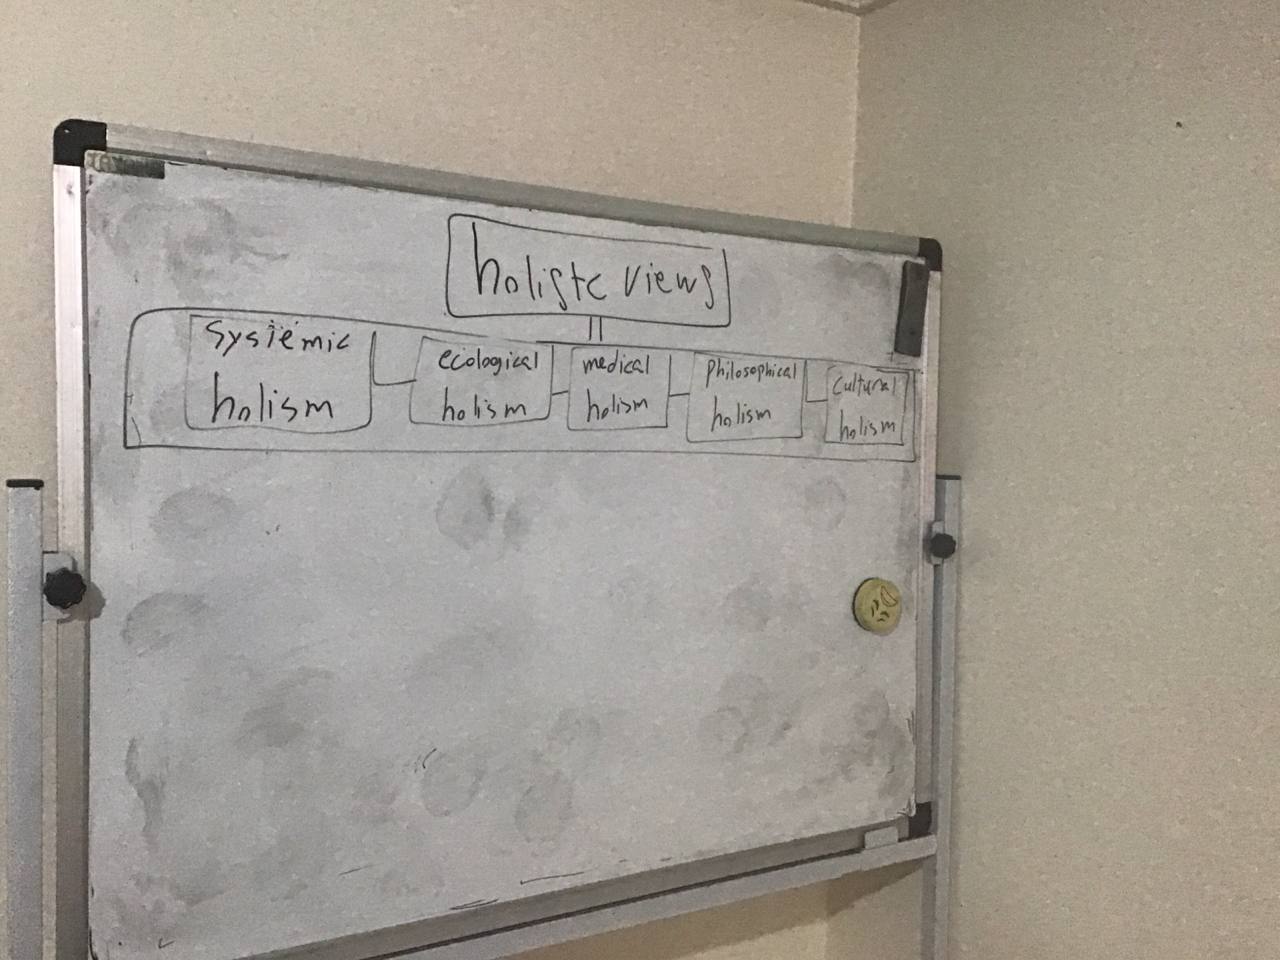 holistc views
systemic
holism
ecological
holism
medical
holism
philosophical
holism
cultural
holism